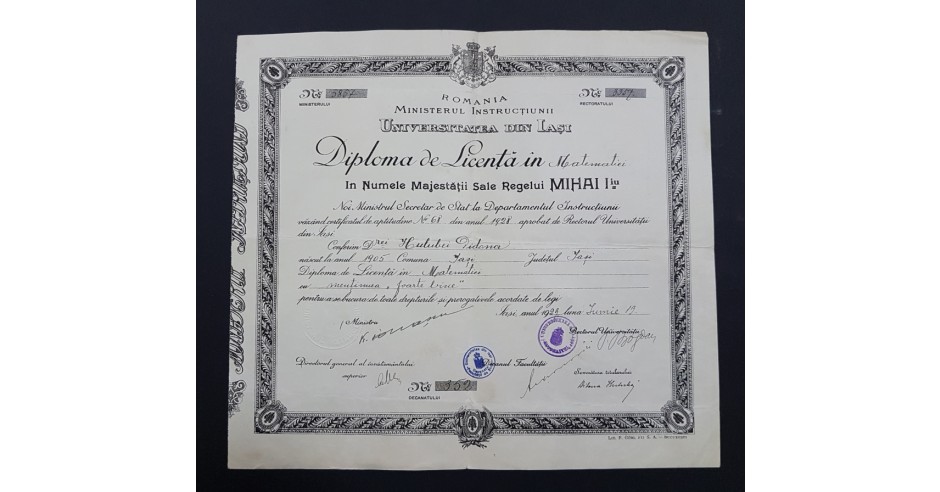 No 5857
MINISTERULUI
No
RECTORATULUI
ROMANIA
MINISTERUL INSTRUCȚIUNII
UNIVERSITATEA DIN IAȘI
Diploma de Licență in Matematici
In Numele Majestății Sale Regelui MIHAI Iiu
Noi Ministrul Secretar de Stat la Departamentul Instrucțiunii
văzând certificatul de aptitudine No 68 din anul 1928 aprobat de Rectorul Universității
din Iași
Conferim Drei Hulubei Didona
născut la anul 1905 Comuna Iași Județul Iași
Diploma de Licență in Matematici
cu mențiunea „foarte bine"
pentru a se bucura de toate drepturile și prerogativele acordate de legi
Iași, anul luna Iunie
Ministru
Rectorul Universității
Directorul general al învățământului
superior
Decanul Facultății
Semnătura titularului
No 552
DECANATULUI